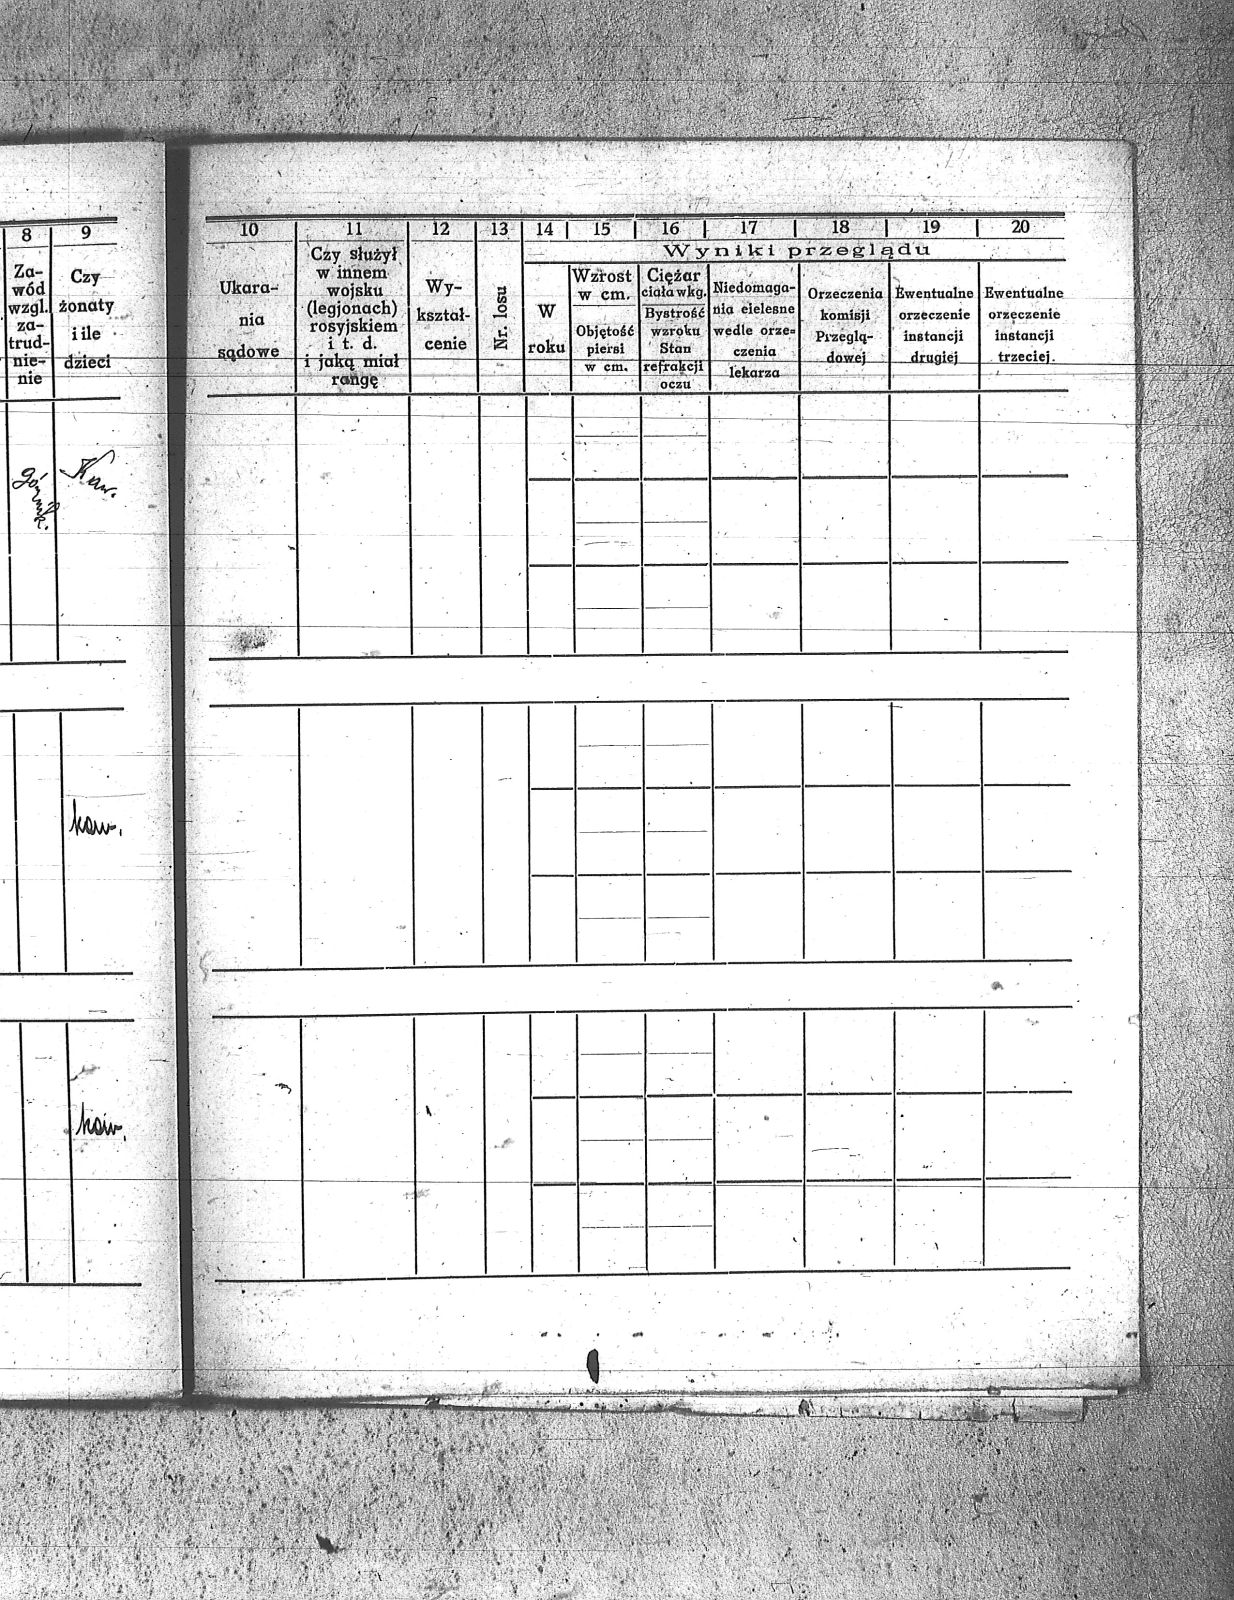 8 9
Za-
wód
wzgl.
za-
trud-
nie-
nie
Czy
żonaty
i ile
dzieci
górnik.
Kaw.
kaw.
kaw.
10 11 12 13 14 15 16 17 18 19 20
Wyniki przeglądu
Ukara-
nia
sądowe
Czy służył
w innem
wojsku
(legjonach)
rosyjskiem
i t. d.
i jaką miał
rangę
Wy-
kształ-
cenie
Nr. losu
W
roku
Wzrost
w cm.
Objętość
piersi
w cm.
Ciężar
ciała w kg.
Bystrość
wzroku
Stan
refrakcji
oczu
Niedomaga-
nia cielesne
wedle orze-
czenia
lekarza
Orzeczenia
komisji
Przeglą-
dowej
Ewentualne
orzeczenie
instancji
drugiej
Ewentualne
orzeczenie
instancji
trzeciej.